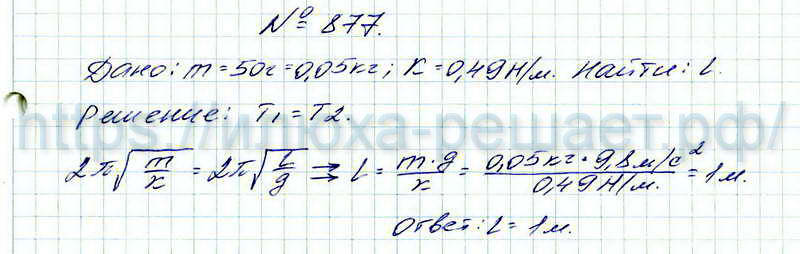 № 877.
Дано: m = 50г = 0,05кг; K = 0,49Н/м. Найти: l.
Решение: T₁ = T2.
https://илюха-решает.рф/
2π√(m/к) = 2π√(l/g) ⇒ l = m·g/к = 0,05кг·9,8м/с²/0,49Н/м. = 1м.
Ответ: l = 1м.